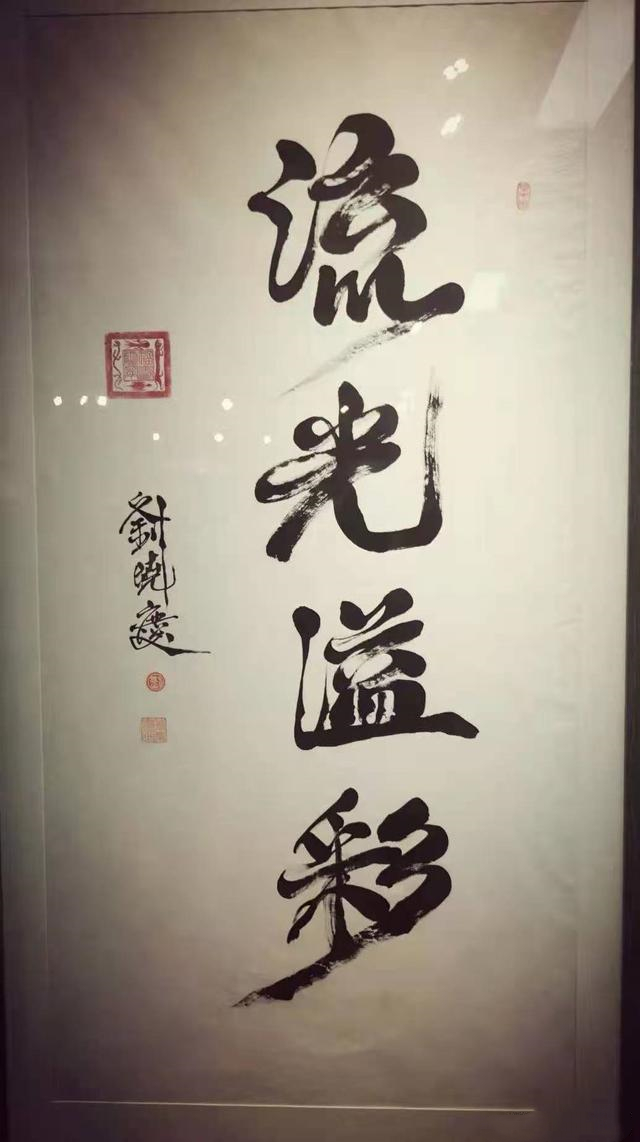 流光溢彩
劉曉慶